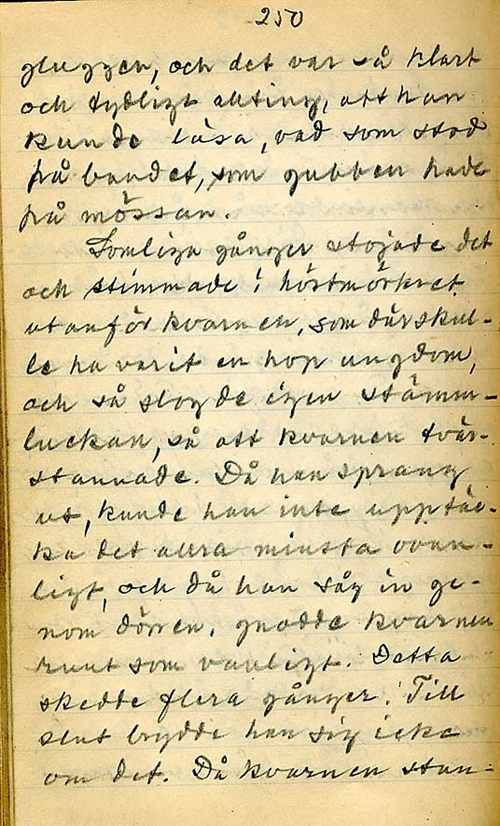 250
gluggen, och det var så klart
och tydligt allting, att han
kunde läsa, vad som stod
på bandet, som gubben hade
på mössan.
Somliga gånger stojade det
och stimmade i höstmörkret
utanför kvarnen, som där skul-
le ha varit en hop ungdom,
och så slog de igen stämm-
luckan, så att kvarnen tvär-
stannade. Då han sprang
ut, kunde han inte upptäc-
ka det allra minsta ovan-
ligt, och då han såg in ge-
nom dörren, gnodde kvarnen
runt som vanligt. Detta
skedde flera gånger. Till
slut brydde han sig icke
om det. Då kvarnen stan-